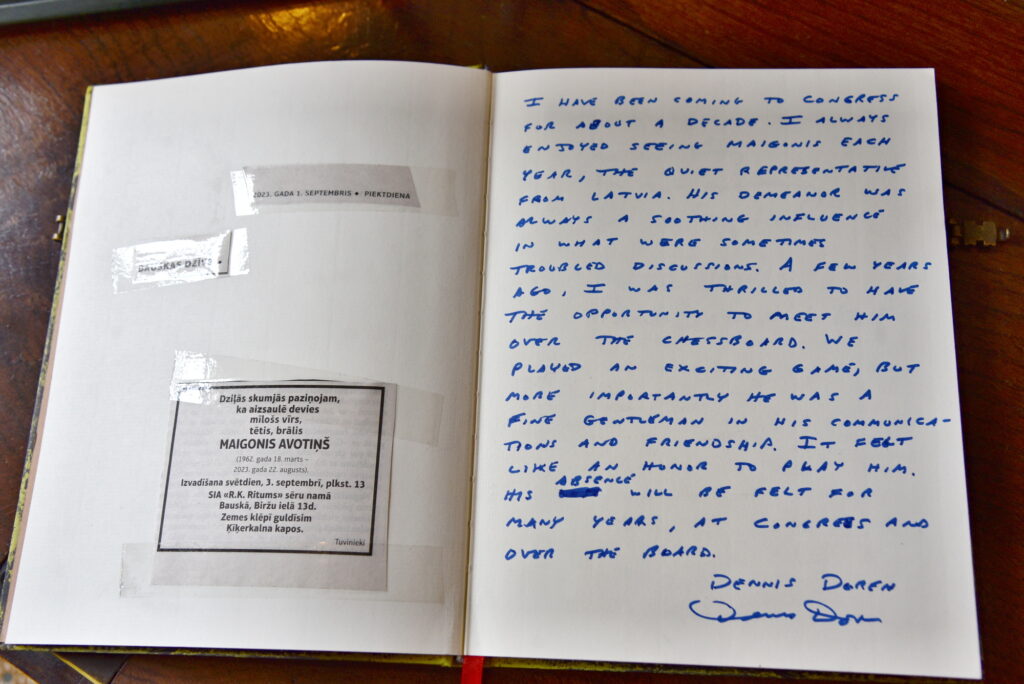 2023. GADA 1. SEPTEMBRIS • PIEKTDIENA
BAUSKAS DZĪVE •
Dziļās skumjās paziņojam,
ka aizsaulē devies
mīlošs vīrs,
tētis, brālis
MAIGONIS AVOTIŅŠ
(1962. gada 18. marts –
2023. gada 22. augusts).
Izvadīšana svētdien, 3. septembrī, plkst. 13
SIA «R.K. Ritums» sēru namā
Bauskā, Biržu ielā 13d.
Zemes klēpī guldīsim
Ķiķerkalna kapos.
Tuvinieki
I HAVE BEEN COMING TO CONGRESS
FOR ABOUT A DECADE. I ALWAYS
ENJOYED SEEING MAIGONIS EACH
YEAR, THE QUIET REPRESENTATIVE
FROM LATVIA. HIS DEMEANOR WAS
ALWAYS A SOOTHING INFLUENCE
IN WHAT WERE SOMETIMES
TROUBLED DISCUSSIONS. A FEW YEARS
AGO, I WAS THRILLED TO HAVE
THE OPPORTUNITY TO MEET HIM
OVER THE CHESSBOARD. WE
PLAYED AN EXCITING GAME, BUT
MORE IMPORTANTLY HE WAS A
FINE GENTLEMAN IN HIS COMMUNICA-
TIONS AND FRIENDSHIP. IT FELT
LIKE AN HONOR TO PLAY HIM.
HIS ABSENCE WILL BE FELT FOR
MANY YEARS, AT CONGRESS AND
OVER THE BOARD.
DENNIS DOREN
Dennis Doren